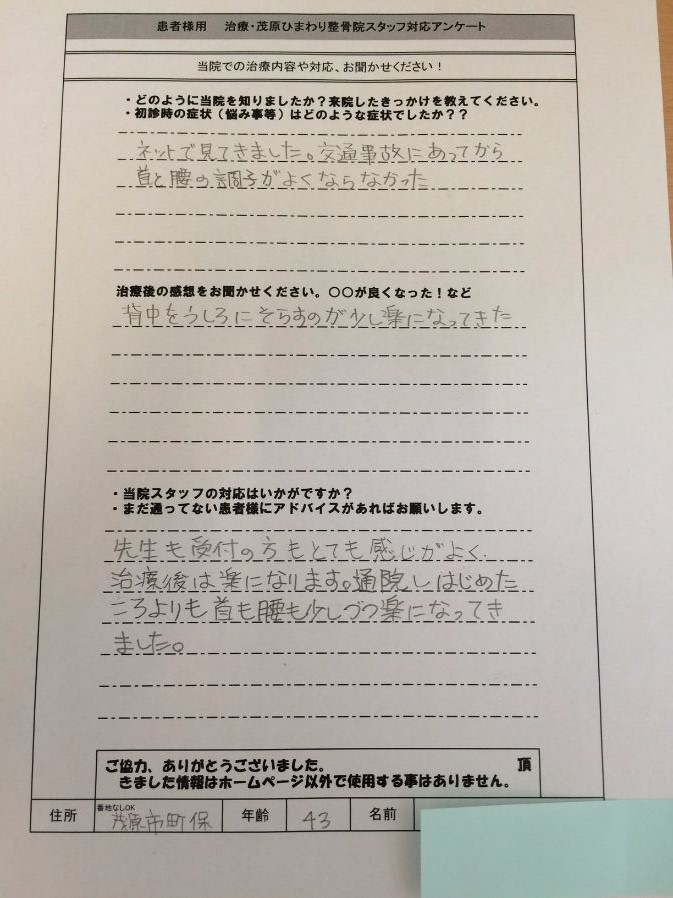 患者様用 治療・茂原ひまわり整骨院スタッフ対応アンケート
当院での治療内容や対応、お聞かせください！
・どのように当院を知りましたか？来院したきっかけを教えてください。
・初診時の症状（悩み事等）はどのような症状でしたか？？
ネットで見てきました。交通事故にあってから
首と腰の調子がよくならなかった
治療後の感想をお聞かせください。〇〇が良くなった！など
背中をうしろにそらすのが少し楽になってきた
・当院スタッフの対応はいかがですか？
・まだ通ってない患者様にアドバイスがあればお願いします。
先生も受付の方もとても感じがよく、
治療後は楽になります。通院しはじめた
ころよりも首も腰も少しづつ楽になってき
ました。
ご協力、ありがとうございました。 頂
きました情報はホームページ以外で使用する事はありません。
住所 番地なしOK 茂原市町保 年齢 43 名前